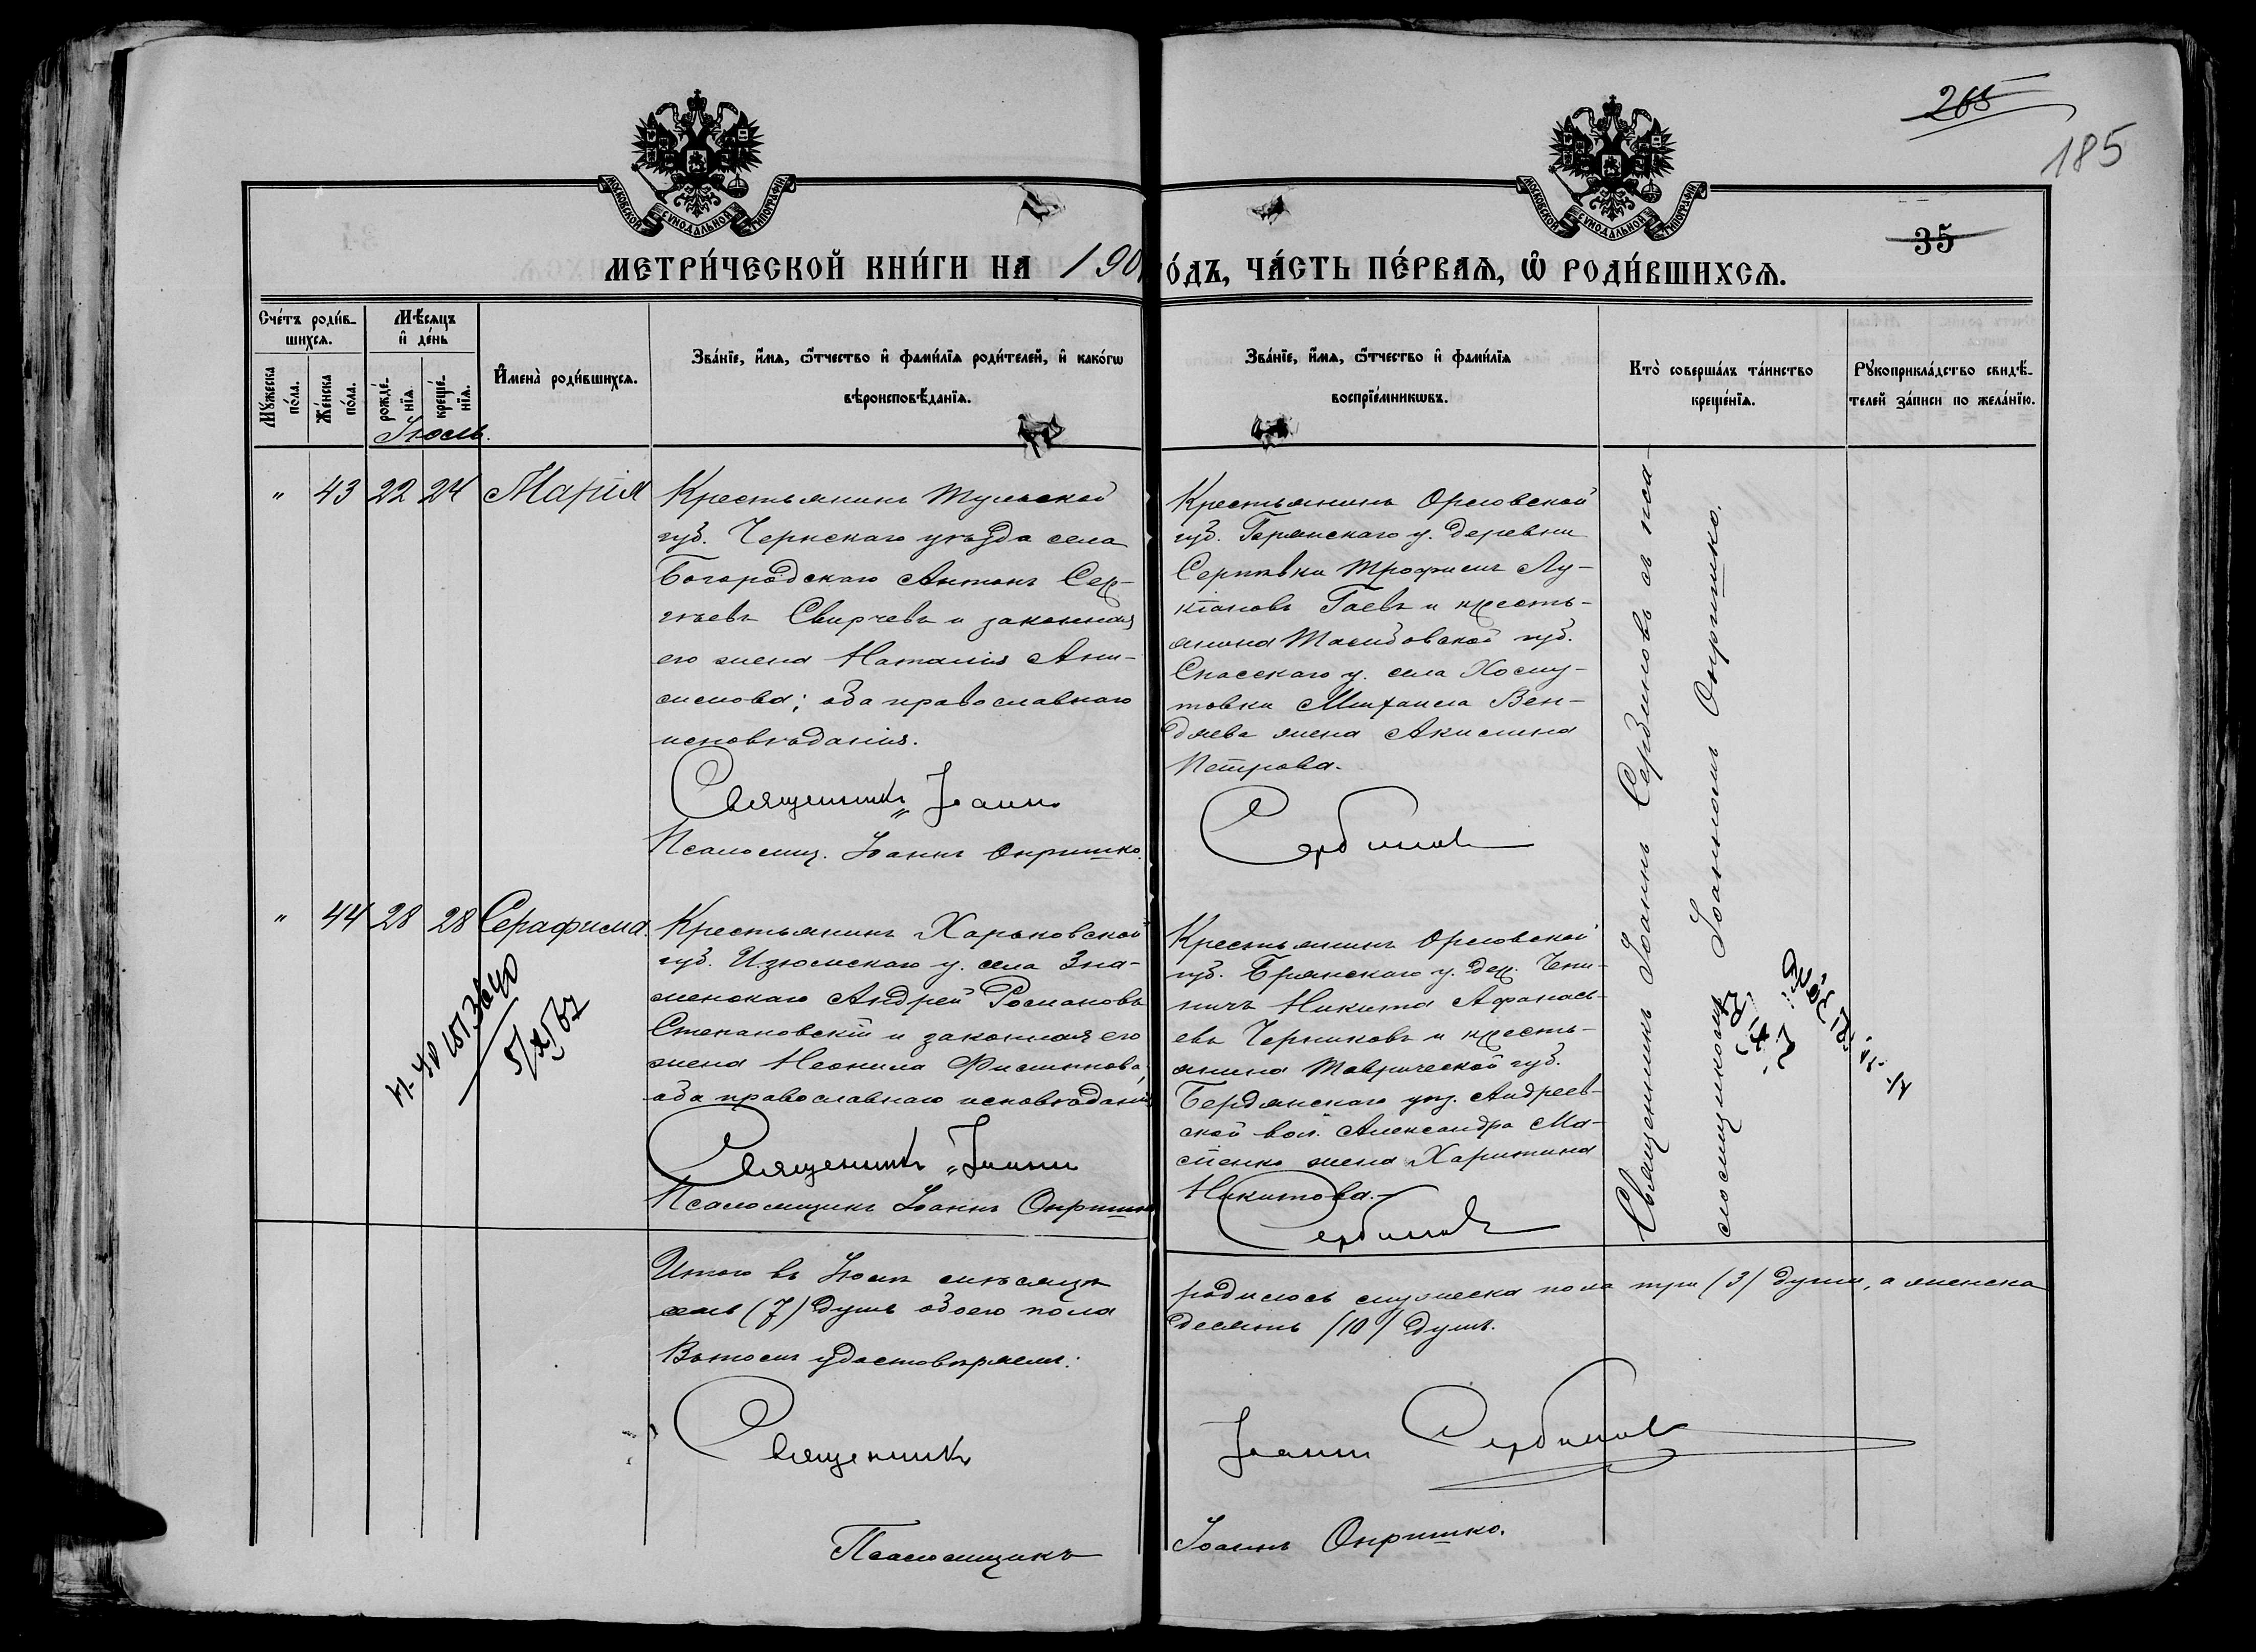 265
185
МОСКОВСКОЙ СѴНОДАЛЬНОЙ ТИПОГРАФІИ
МОСКОВСКОЙ СѴНОДАЛЬНОЙ ТИПОГРАФІИ
35
МЕТРИ́ЧЕСКОЙ КНИ́ГИ НА 190 ГО́ДЪ, ЧА́СТЬ ПЕ́РВАЯ, Ѡ҆ РОДИ́ВШИХСЯ.
Сче́тъ роди́в-
шихся.
Мꙋ́жеска по́ла.
Же́нска по́ла.
Мѣ́сяцъ и҆ де́нь
рожде́-нїя.
креще́-нїя.
И҆мена̀ роди́вшихся.
Зва́нїе, и҆́мя, ѻ҆́тчество и҆ фами́лїя роди́телей, и҆ како́гѡ
вѣроисповѣ́данїя.
Зва́нїе, и҆́мя, ѻ҆́тчество и҆ фами́лїя
воспрїе́мникѡвъ.
Кто̀ соверша́лъ та́инство
креще́нїя.
Рꙋкоприкла́дство свидѣ́-
телей за́писи по жела́нїю.
Іюль.
" 43 22 24 Марія
Крестьянинъ Тульской
губ. Чернскаго уѣзда села
Богородскаго Антонъ Сер-
гѣевъ Свирчевъ и законная
его жена Наталія Ани-
симова; оба православнаго
исповѣданія.
Священникъ Іоаннъ
Псаломщ. Іоаннъ Онришко.
Крестьянинъ Орловской
губ. Брянскаго у. деревни
Трофимъ Лу-
кіановъ Гаевъ и кресть-
янина Тамбовской губ.
Спасскаго у. села Хому-
товки Михаила Вен-
дяева жена Акилина
Петрова.
Сербиновъ
Священникъ Іоаннъ Сербиновъ съ пса-
ломщикомъ Іоанномъ Онришко.
" 44 28 28 Серафима.
Крестьянинъ Харьковской
губ. Изюмскаго у. села Зна-
менскаго Андрей Романовъ
Степановскій и законная его
жена Неонила Филиппова,
оба православнаго исповѣданія
Священникъ Іоаннъ
Псаломщикъ Іоаннъ Онришко
Крестьянинъ Орловской
губ. Брянскаго у. дер.
Никита Афанась-
евъ Черниковъ и кресть-
янина Таврической губ.
Бердянскаго уѣз. Андреев-
ской вол. Александра Ма-
жена Харитина
Никитова.
Сербиновъ
Итого въ Іюлѣ мѣсяцѣ родилось мужеска пола три /3/ души, а женска
семь (7) душъ обоего пола десять /10/ душъ.
Въ томъ удостовѣряемъ:
Священникъ Іоаннъ Сербиновъ
Псаломщикъ Іоаннъ Онришко.